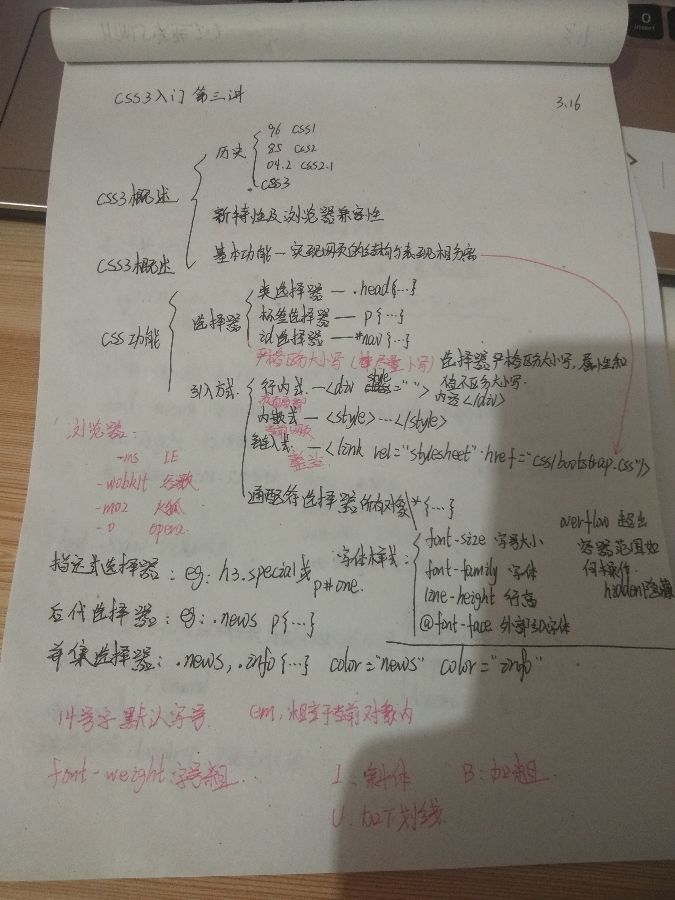 CSS3入门 第三讲 3.16
历史
96 CSS1
85 CSS2
04.2 CSS2.1
CSS3
CSS3概述
新特性及浏览器兼容性
CSS3概述
基本功能—实现网页的结构与表现相分离
CSS功能
选择器
类选择器 — .head{…}
标签选择器 — p{…}
id选择器 — #nav{…}
严格区分大小写(尽量小写)
选择器严格区分大小写,属性和
值不区分大小写.
引入方式
行内式 — <div style=" "> 内容</div>
内嵌式 — <style>…</style>
当前网页
链入式 — <link rel="stylesheet" href="css/bootstrap.css"/>
整站
通配符选择器 所有对象 *{…}
浏览器:
-ms IE
-webkit 谷歌
-moz 火狐
-o opera
字体样式:
font-size 字号大小
font-family 字体
line-height 行高
@font-face 外部引入字体
overflow 超出
容器范围如
何操作.
hidden隐藏
指定式选择器:eg: h3.special或
p#one.
后代选择器:eg: .news p{…}
并集选择器:.news, .info{…} color="news" color="info"
14号字 默认字号. em,相对于当前对象内
font-weight:字号粗.
I:斜体 B:加粗.
U.加下划线.